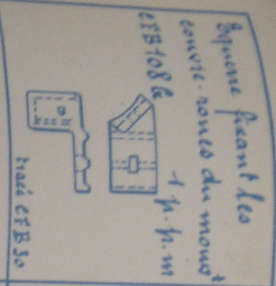 Equerre fixant les
couvre-roues du mouvt
CPB108b 1 p.p.m
tracé CPB30